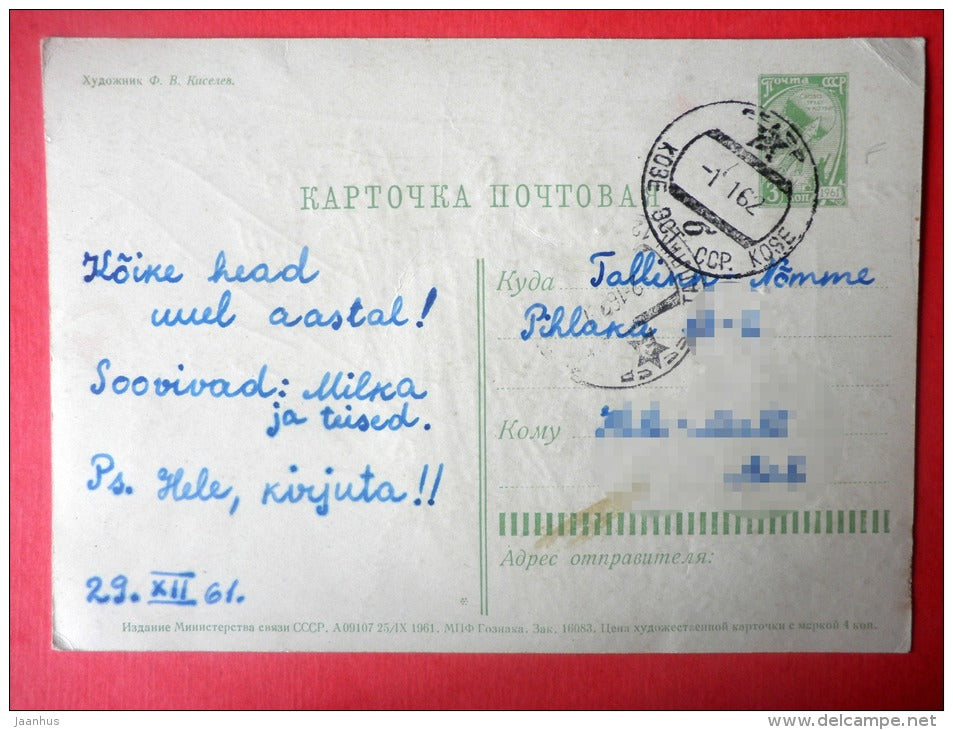 Художник Ф. В. Киселев.
Почта СССР
3 коп
1961
КАРТОЧКА ПОЧТОВАЯ
КОЗЕ ЭСТ. ССР. KOSE
-1 1 62
б
Kõike head
uuel aastal!
Soovivad: Milka
ja teised.
Ps. Hele, kirjuta!!
29. XII 61.
Куда Tallinn-Nõmme
Pihlaka
Кому
Адрес отправителя:
Издание Министерства связи СССР. А 09107 25/IX 1961. МПФ Гознака. Зак. 16083. Цена художественной карточки с маркой 4 коп.
Jaanhus
www.delcampe.net